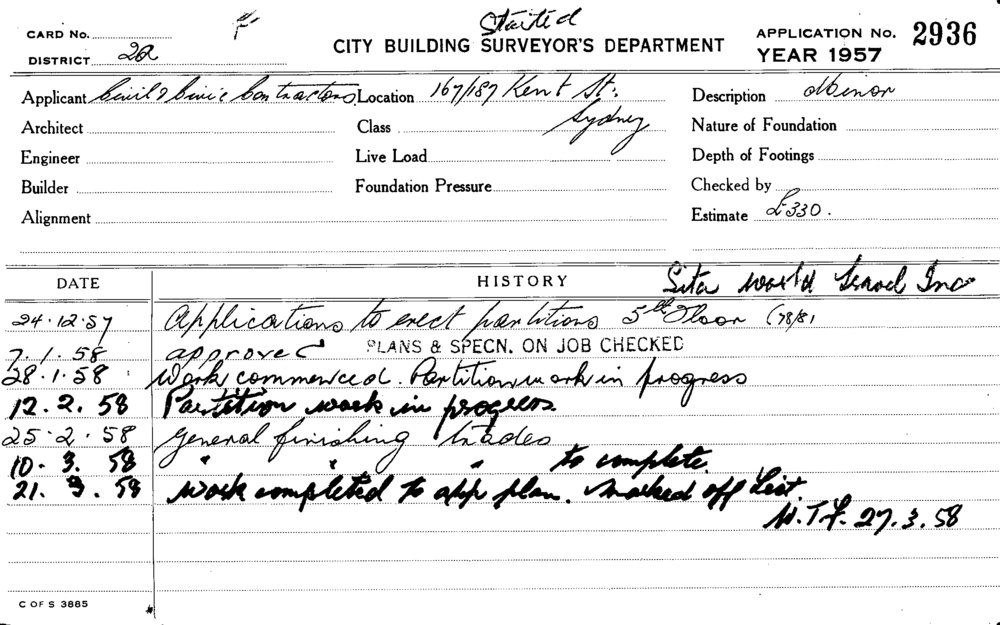 Started
CARD No.
CITY BUILDING SURVEYOR'S DEPARTMENT
APPLICATION No. 2936
DISTRICT 2a
YEAR 1957
Applicant Civil & Civic Contractors Location 167/187 Kent St. Description Minor
Sydney
Architect Class Nature of Foundation
Engineer Live Load Depth of Footings
Builder Foundation Pressure Checked by
Alignment Estimate £330.
DATE HISTORY Sita World Travel Inc
24.12.57 Applications to erect partitions 5th Floor (78/8)
7.1.58 approved PLANS & SPECN. ON JOB CHECKED
28.1.58 Work commenced. Partition work in progress
12.2.58 Partition work in progress.
25.2.58 General finishing trades
10.3.58 " " " to complete.
21.3.58 work completed to app plan. Marked off List.
27.3.58
C OF S 3885